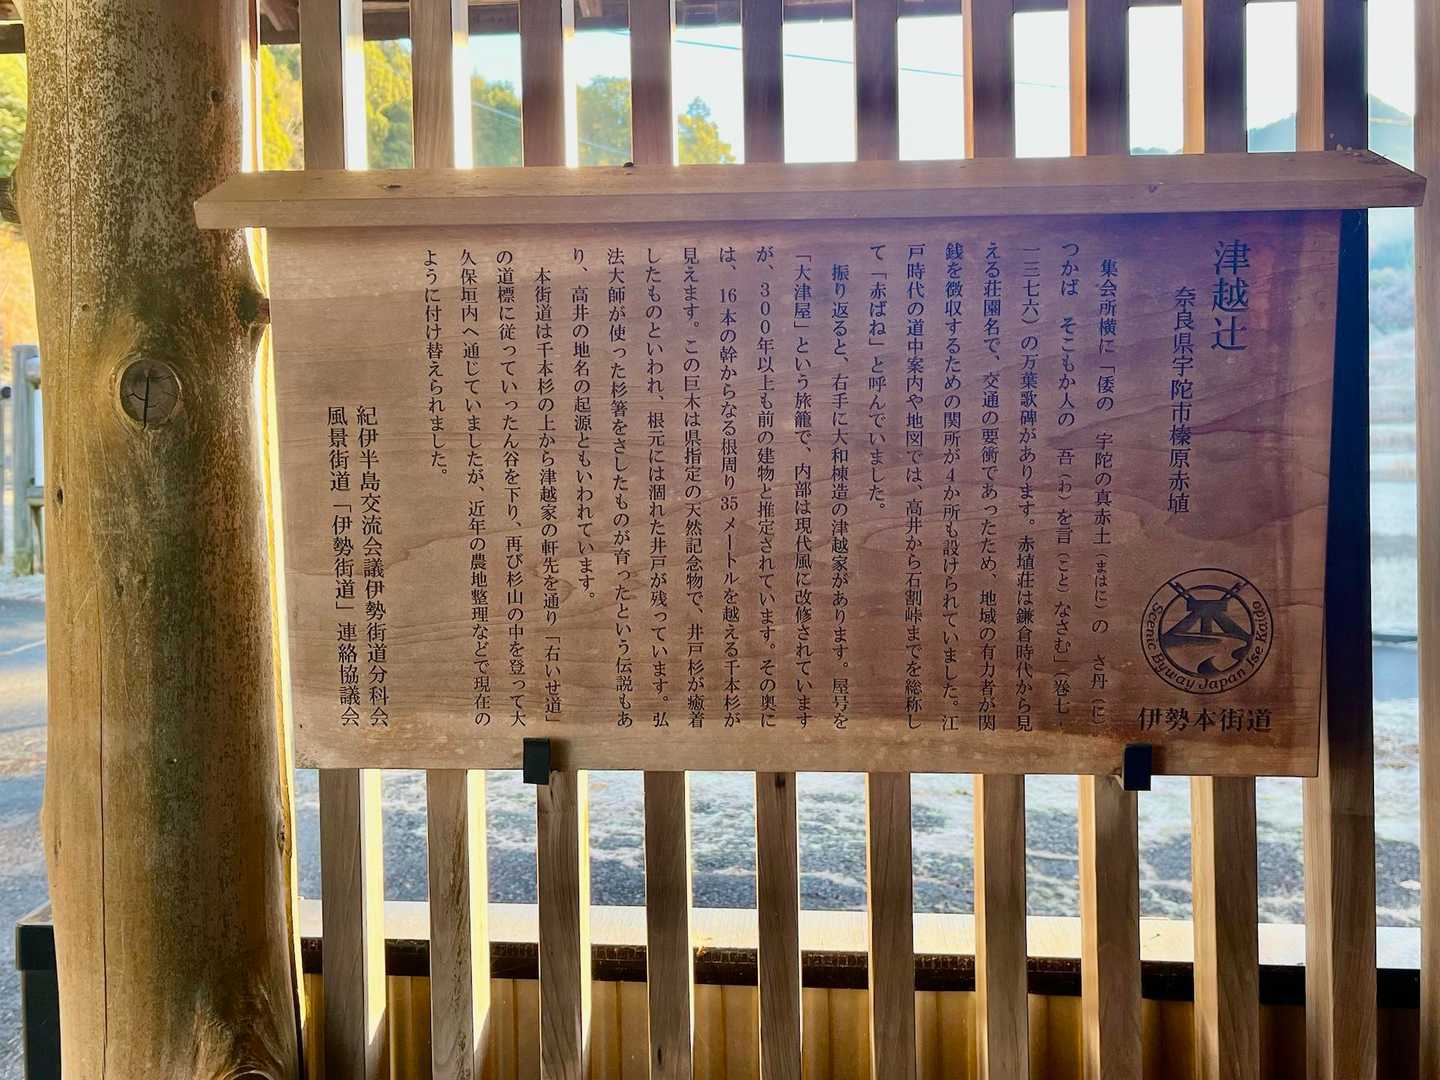 津越辻
奈良県宇陀市榛原赤埴
Scenic Byway Japan Ise Kaido
伊勢本街道
集会所横に「倭の　宇陀の真赤土（まはに）の　さ丹（に）
つかば　そこもか人の　吾（わ）を言（こと）なさむ」（巻七-
一三七六）の万葉歌碑があります。赤埴荘は鎌倉時代から見
える荘園名で、交通の要衝であったため、地域の有力者が関
銭を徴収するための関所が4か所も設けられていました。江
戸時代の道中案内や地図では、高井から石割峠までを総称し
て「赤ばね」と呼んでいました。
振り返ると、右手に大和棟造の津越家があります。屋号を
「大津屋」という旅籠で、内部は現代風に改修されています
が、300年以上も前の建物と推定されています。その奥に
は、16本の幹からなる根周り35メートルを越える千本杉が
見えます。この巨木は県指定の天然記念物で、井戸杉が癒着
したものといわれ、根元には涸れた井戸が残っています。弘
法大師が使った杉箸をさしたものが育ったという伝説もあ
り、高井の地名の起源ともいわれています。
本街道は千本杉の上から津越家の軒先を通り「右いせ道」
の道標に従っていったん谷を下り、再び杉山の中を登って大
久保垣内へ通じていましたが、近年の農地整理などで現在の
ように付け替えられました。
紀伊半島交流会議伊勢街道分科会
風景街道「伊勢街道」連絡協議会